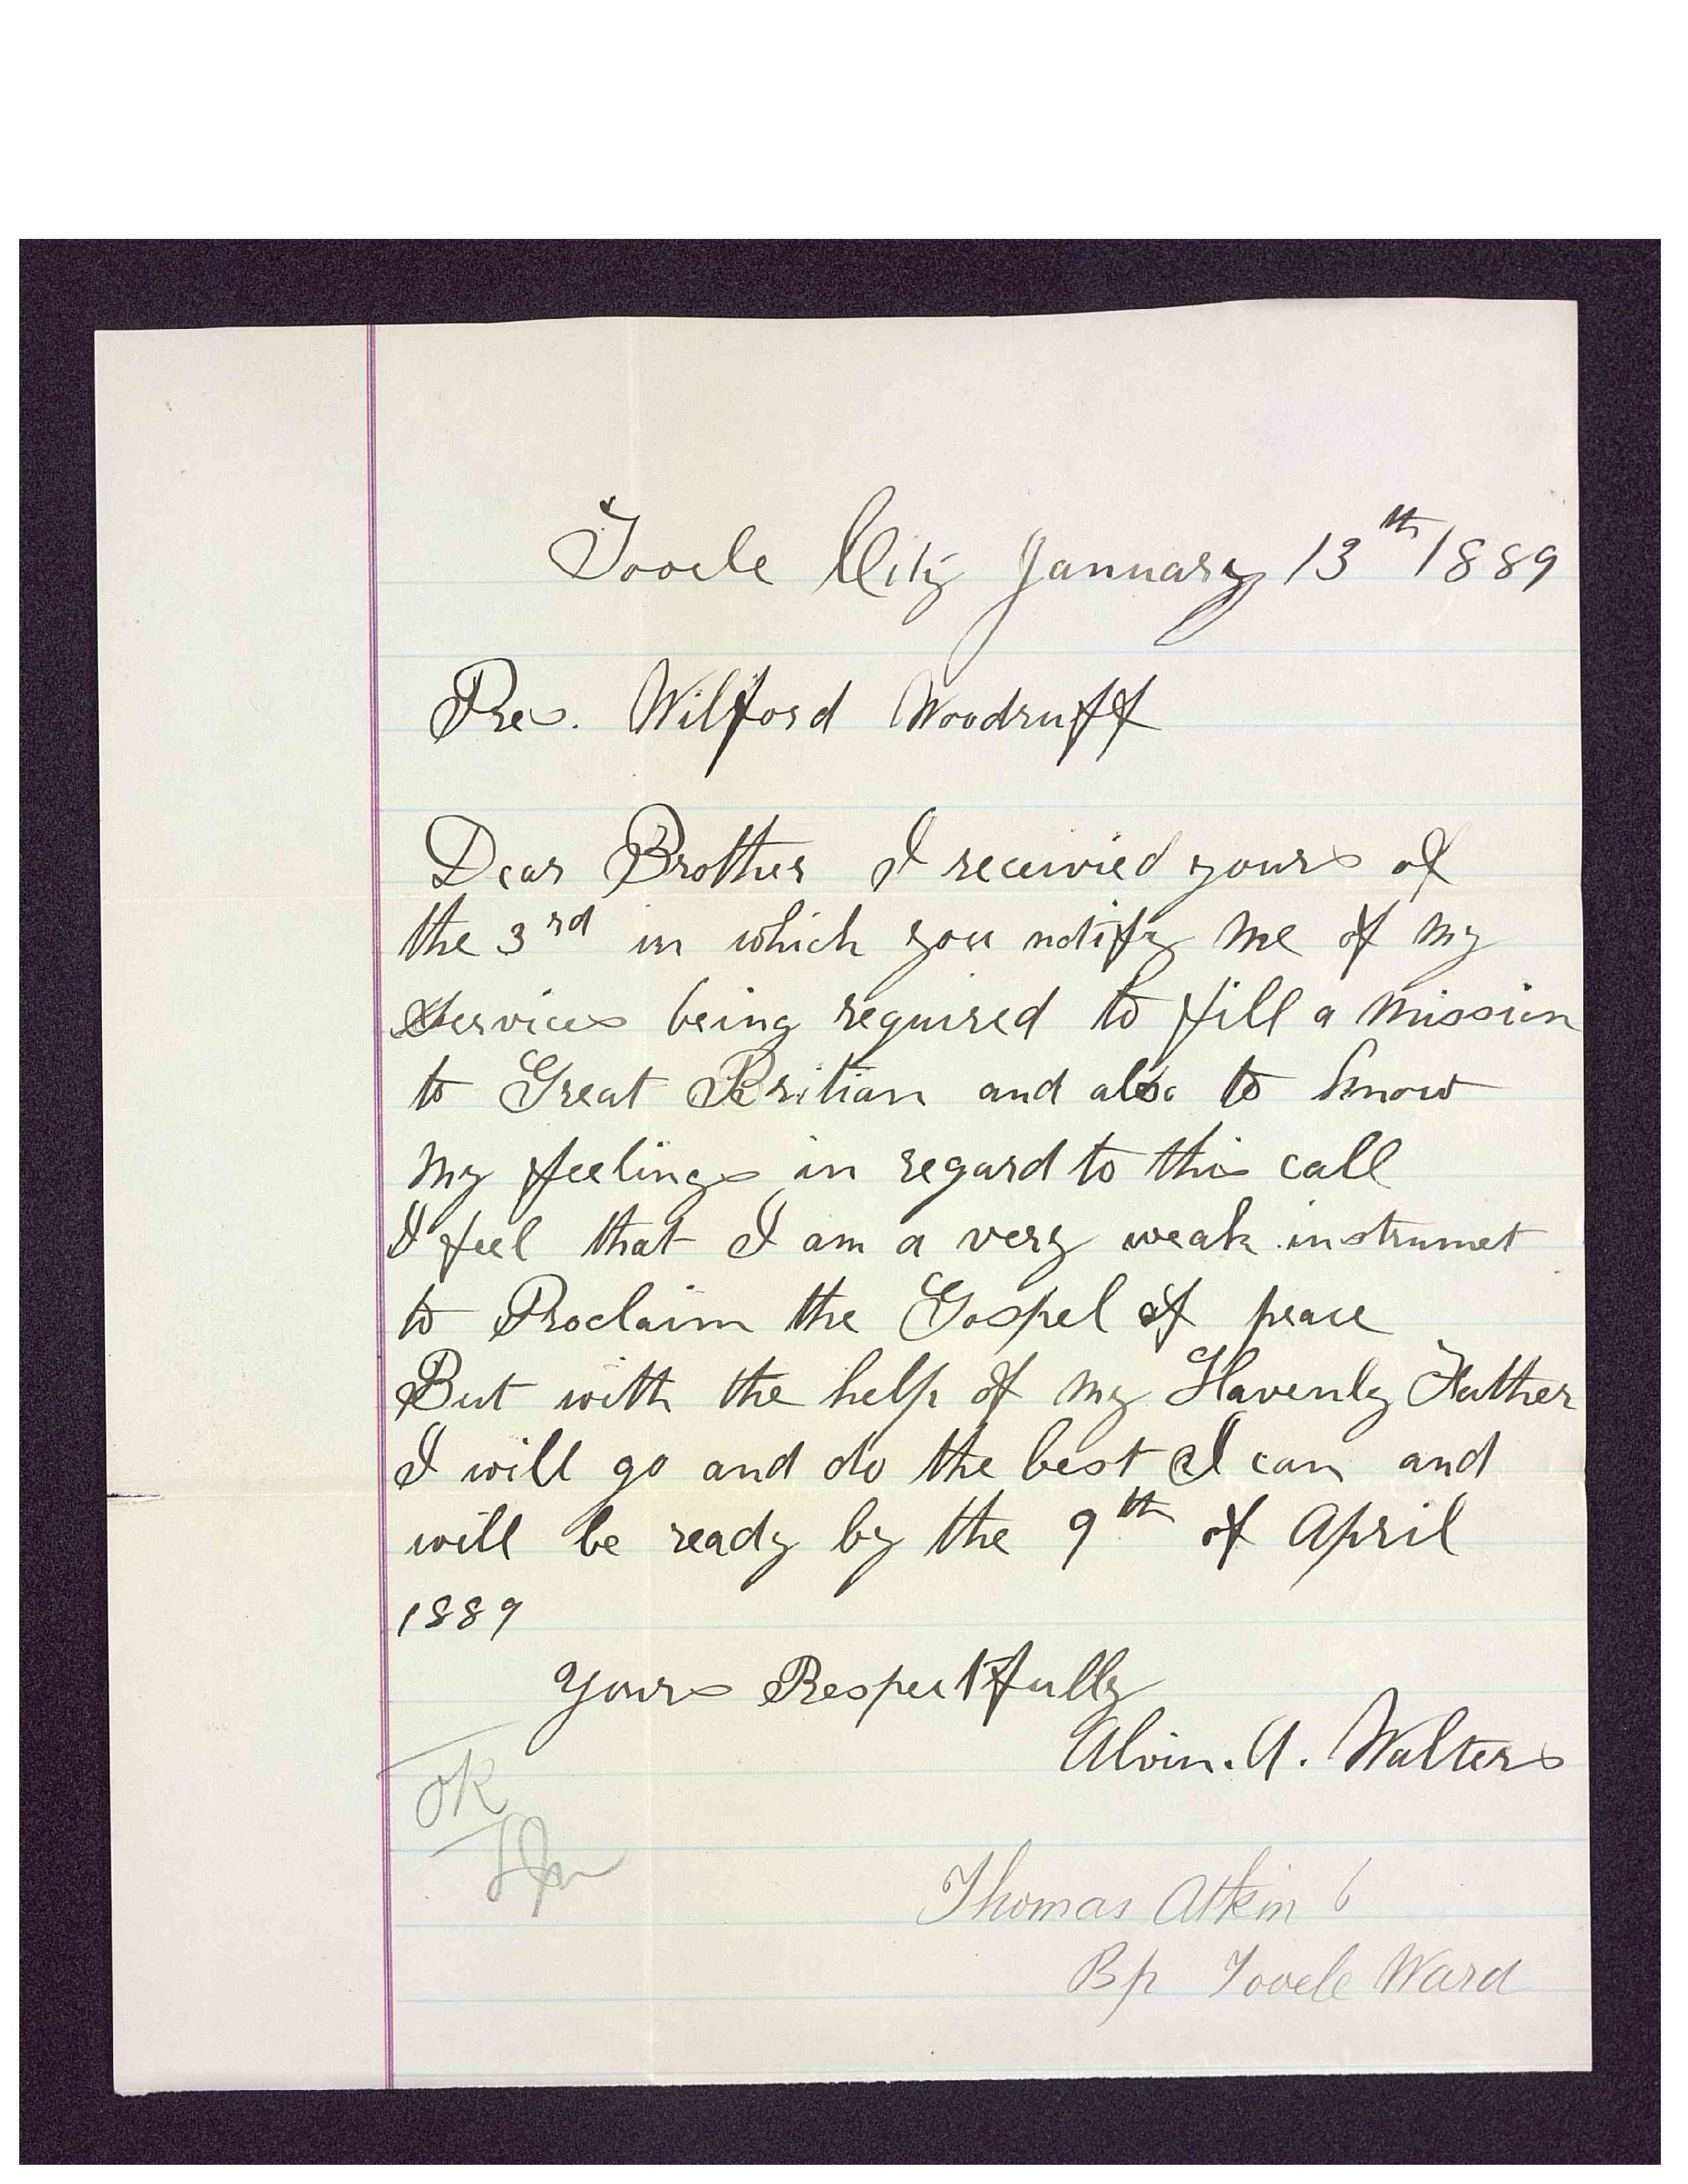 Tooele City January 13th 1889
Pres. Wilford Woodruff
Dear Brother I receivied yours of
the 3rd in which you notify me of my
services being required to fill a mission
to Great Britian and also to know
my feelings in regard to this call
I feel that I am a very weak instrumet
to Proclaim the Gospel of peace
But with the help of my Havenly Father
I will go and do the best I can and
will be ready by the 9th of April
1889
Yours Respectfully
Alvin. A. Walters
OK
Thomas Atkin
Bp Tooele Ward